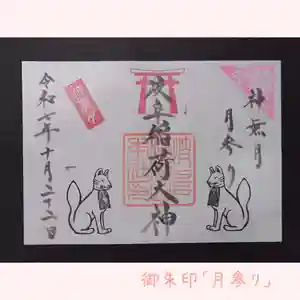 神無月
月参り
岐阜稲荷大神
令和七年十月二十二日
御朱印「月参り」